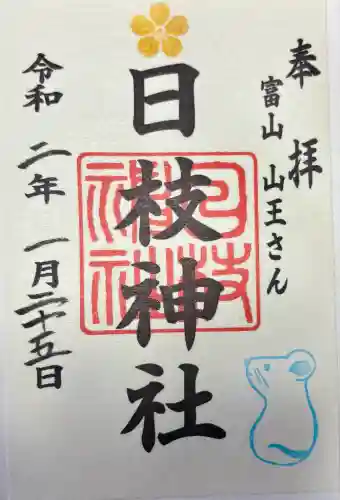 奉拝
富山 山王さん
日枝神社
令和二年 一月二十五日